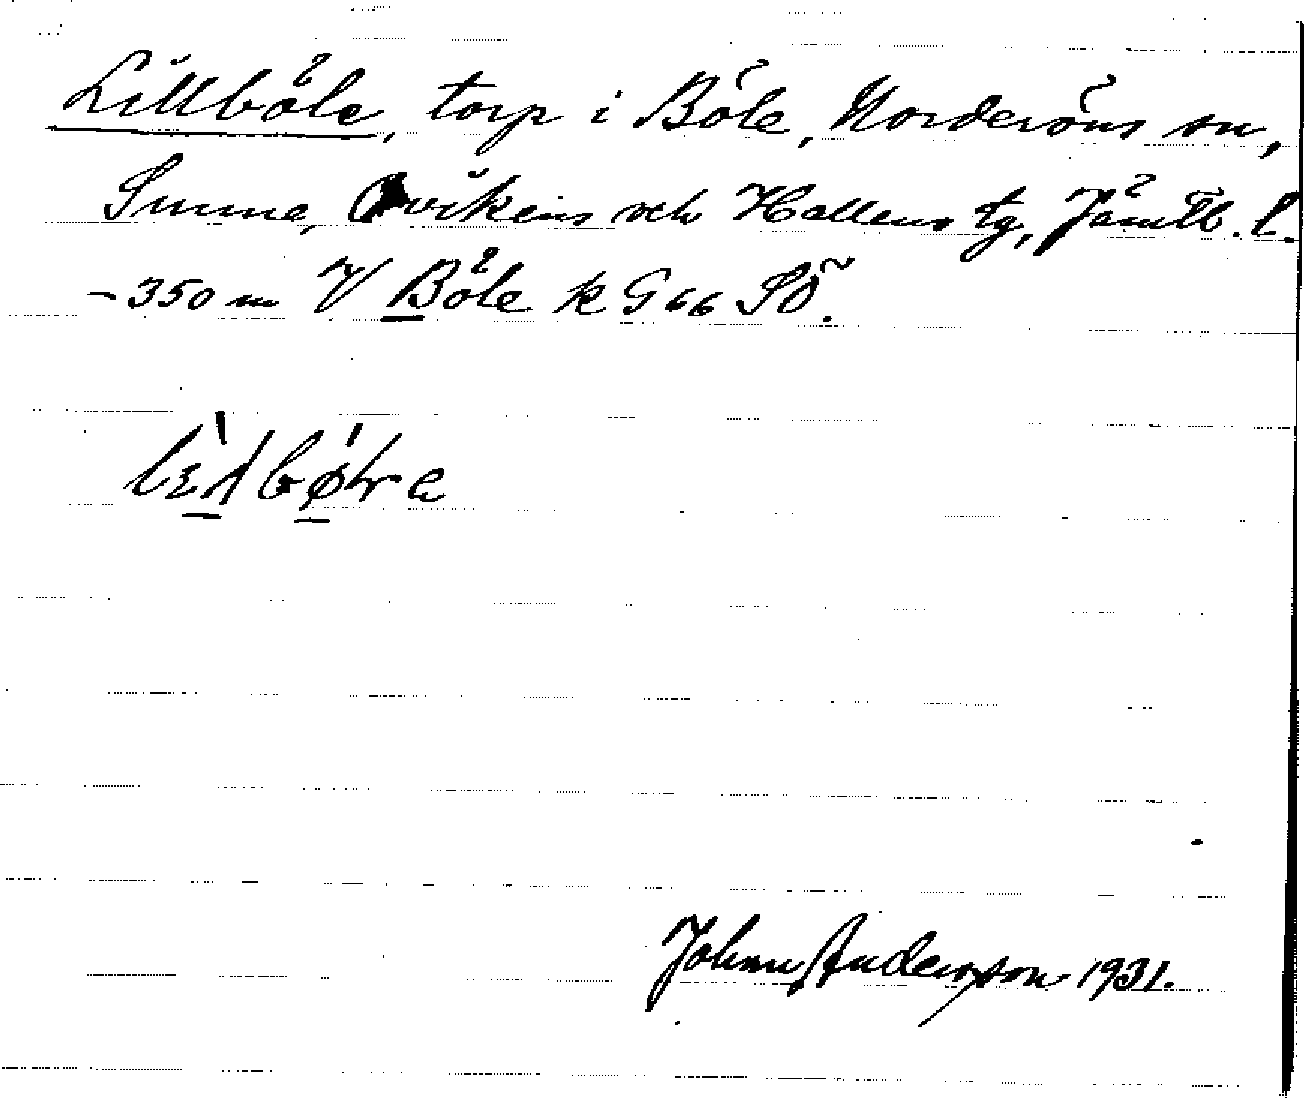 Lillböle, torp i Böle, Norderöns sn,
Sunne, Ovikens och Hallens tg, Jämtl. l.
- 350 m V Böle k G 66 SÖ.
Johan Anderson 1931.